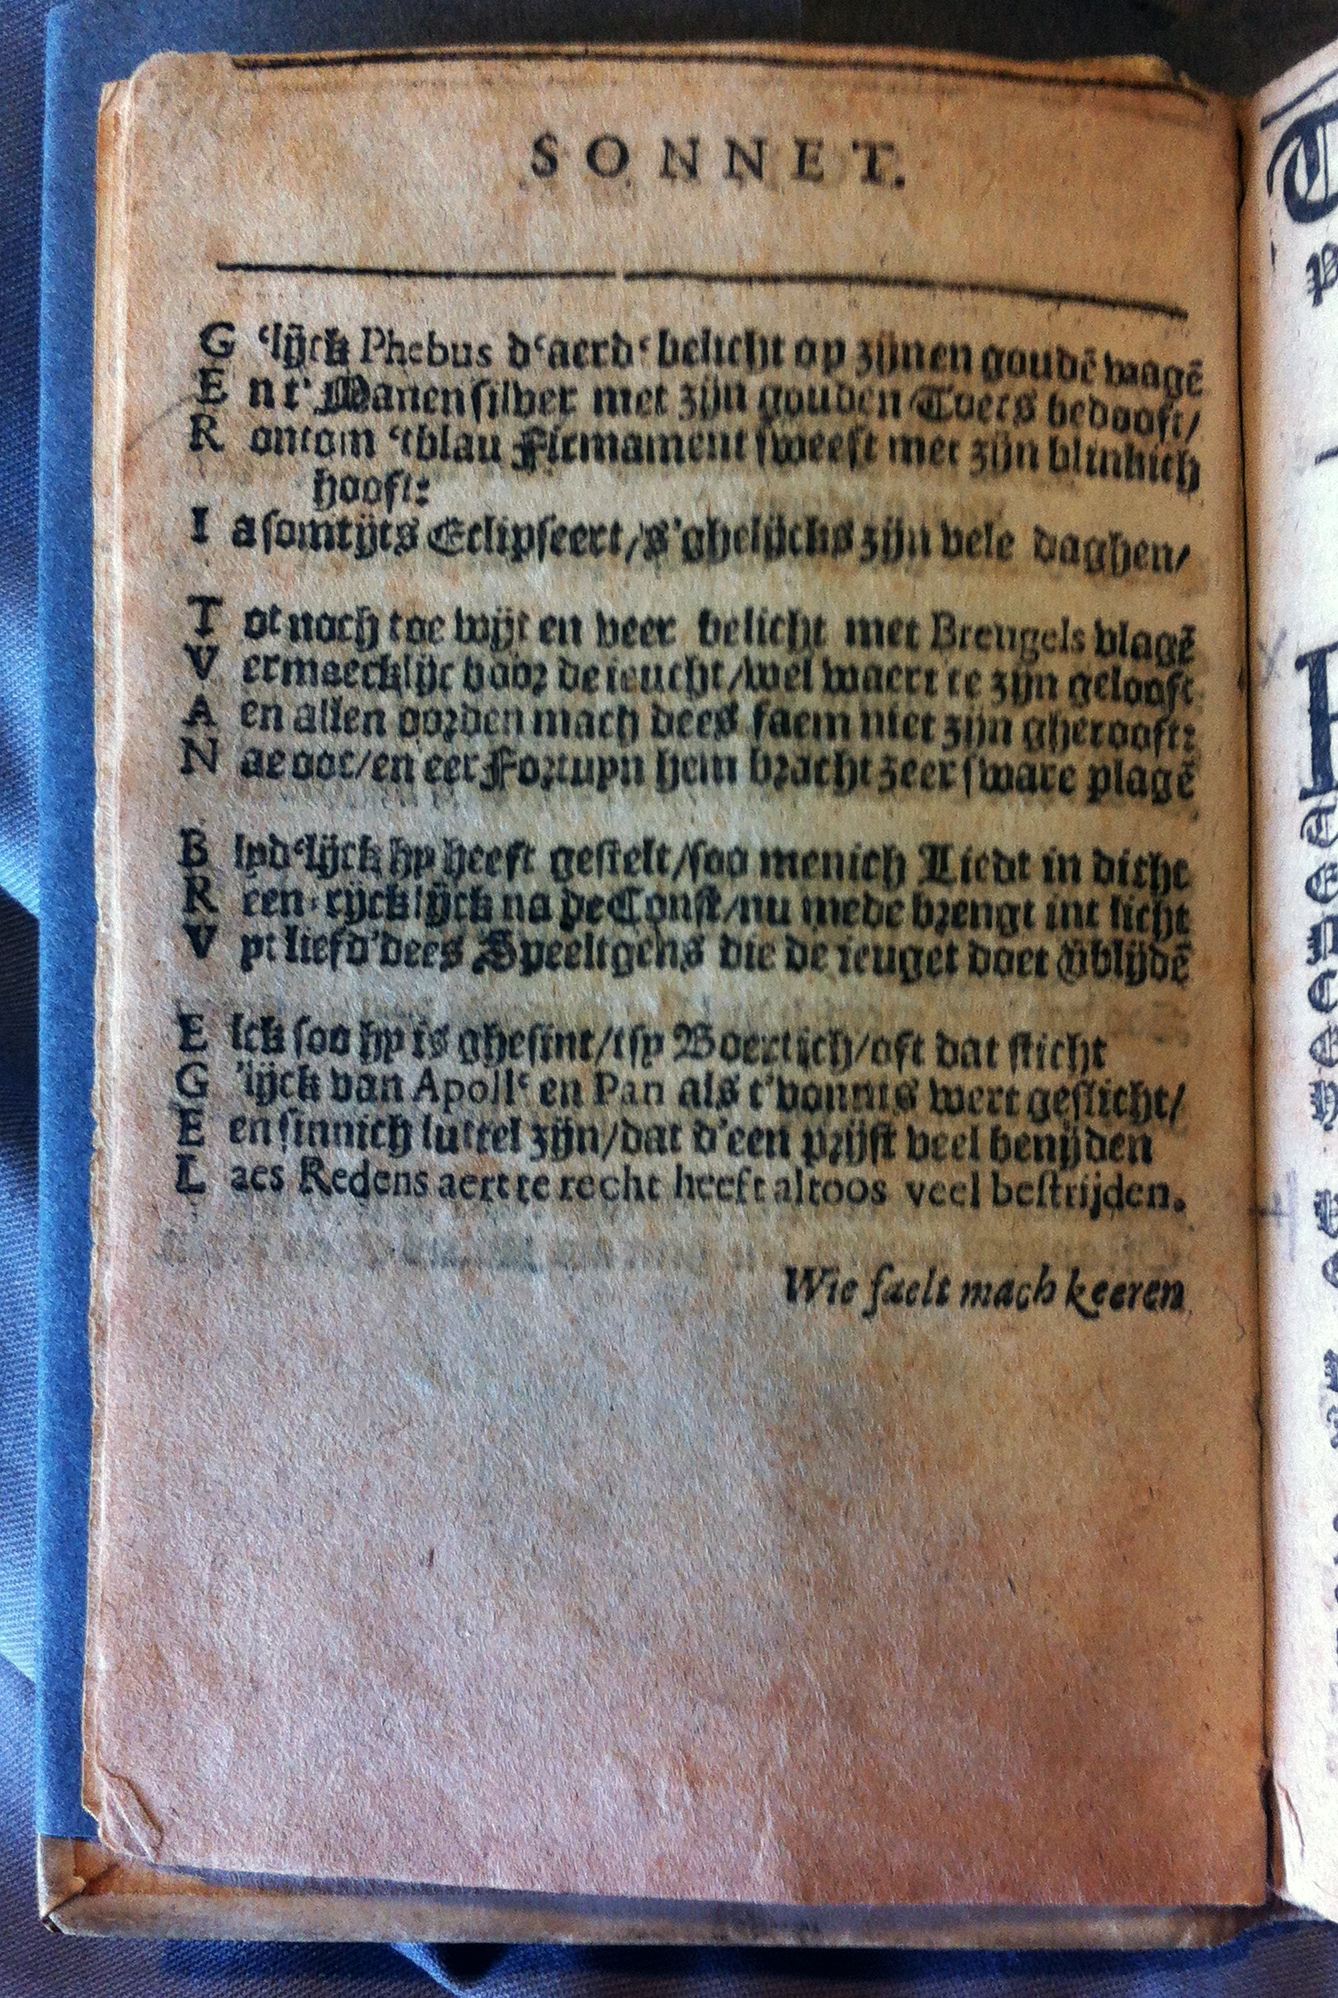 SONNET.
G ‘lijck Phebus d‘aerd‘ belicht op zijnen goudē wagē
E n t' Manen silver met zijn gouden Toets bedooft/
R ontom ‘tblau Firmament sweeft met zijn blinkich
hooft:
I a somtijts Eclipseert/s'ghelijcks zijn vele daghen/
T ot noch toe wijt en veer belicht met Breugels vlagē
V ermaecklijc voor de ieucht/wel waert te zijn gelooft
A en allen oorden mach dees faem niet zijn gherooft:
N ae ooc/en eer Fortuyn hem bracht zeer sware plagē
B lyd‘lijck hy heeft gestelt/soo menich Liedt in dicht
R een-rijcklijck na de Const/nu mede brengt int licht
V yt liefd'dees Speeltgens die de ieuget doet v̄blijdē
E lck soo hy is ghesint/tsy Boertich/oft dat sticht
G 'lijck van Apoll‘ en Pan als t'vonnis wert geslicht/
E en sinnich luttel zijn/dat d'een prijst veel benijden
L aes Redens aert te recht heeft altoos veel bestrijden.
Wie faelt mach keeren